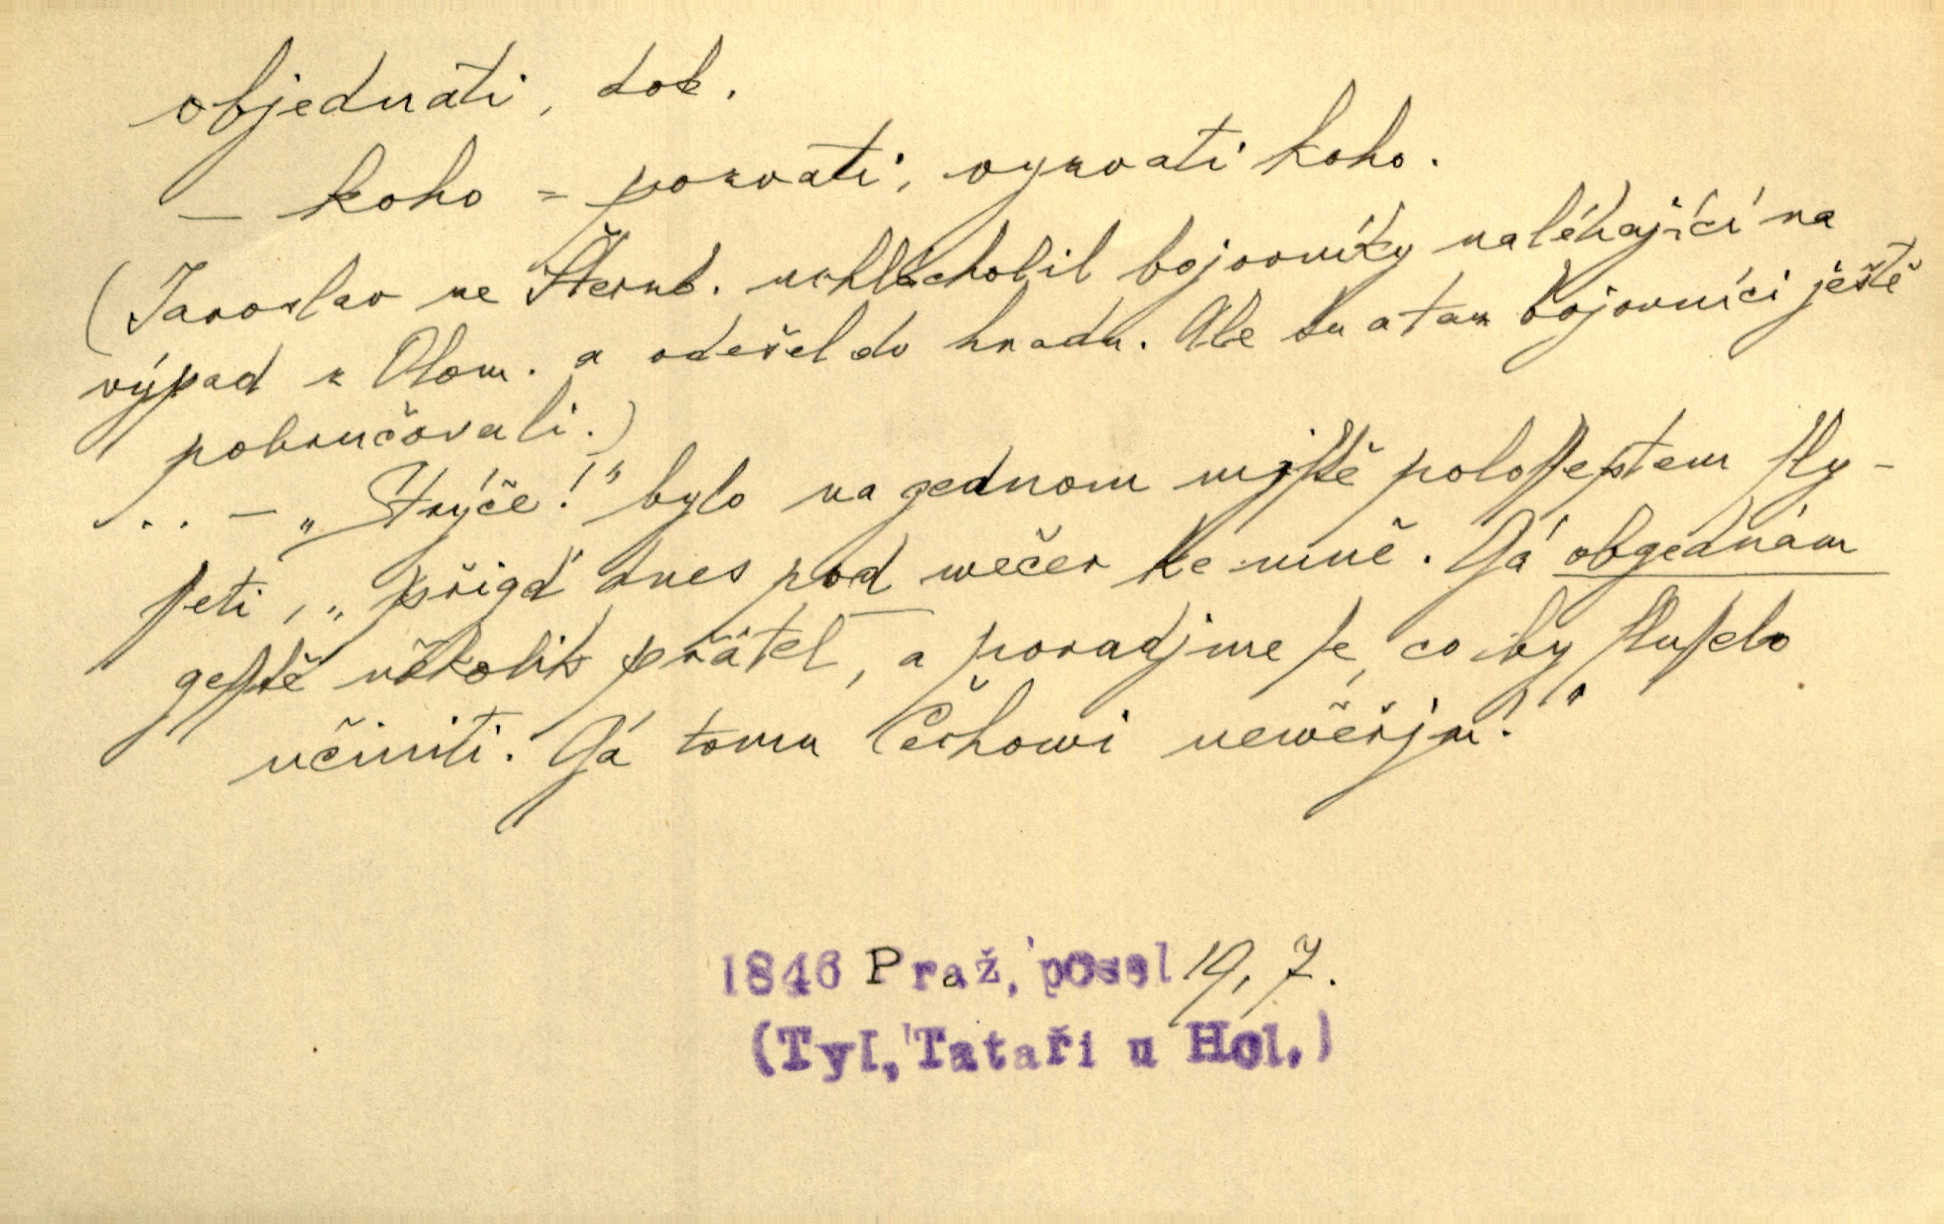 objednati, dok.
— koho = pozvati, vyzvati koho.
(Jaroslav ze Šternb. uchlácholil bojovníky naléhající na
výpad z Olom. a odešel do hradu. Ale tu a tam bojovníci ještě
pobručovali.)
.. — „Strýče!" bylo na gednom mjſtě poloſſeptem ſly-
ſſeti, „přigď dnes pod wečer ke mně. Gá obgednám
geſſtě několik přátel, a poradjme ſe, co by ſluſſelo
učiniti. Gá tomu Čechowi newěřjm."
1846 Praž. posel 19, 7.
(Tyl, Tataři u Hol.)